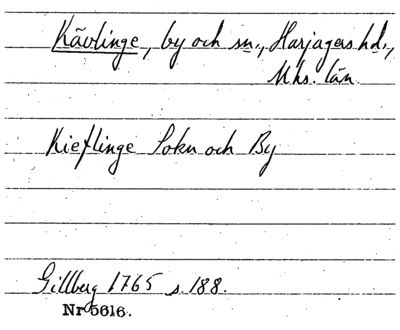 Kävlinge, by och sn., Harjagers hd.,
Mhs. län.
Kieflinge Sokn och By
Gillberg 1765 s. 188.
Nr 5616.